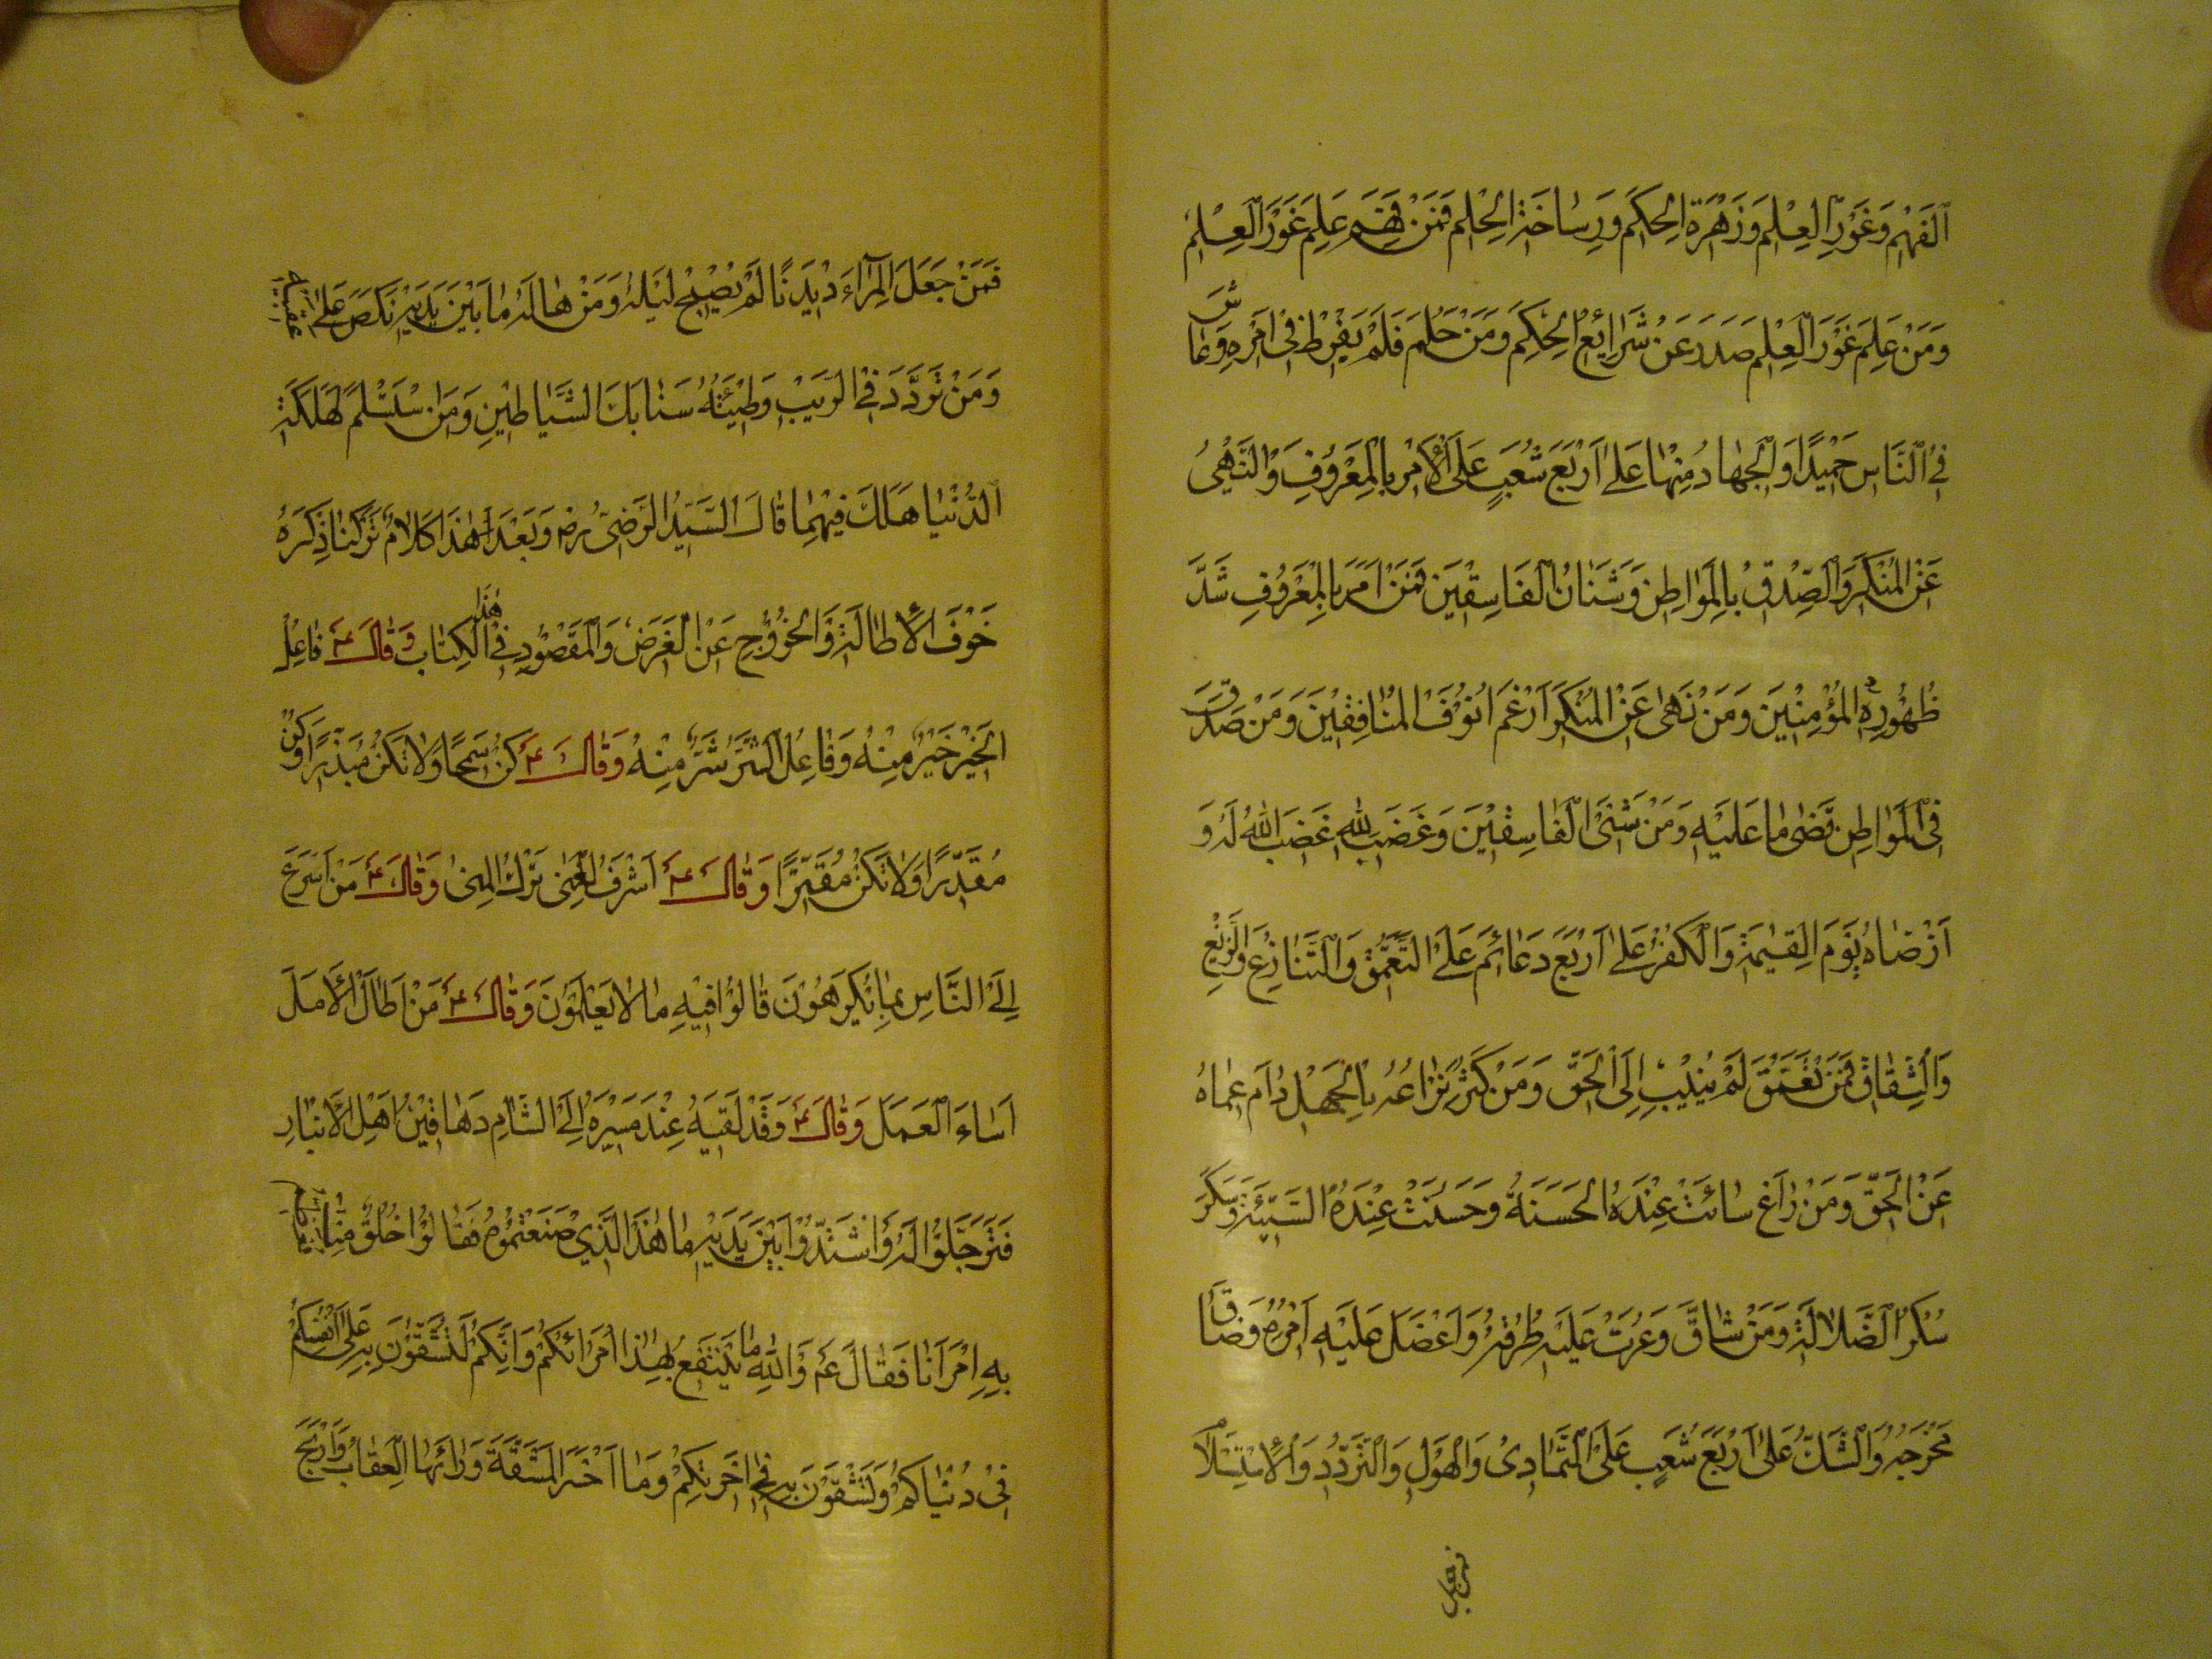 اَلْفَهْمِ وَغَوْرِ الْعِلْمِ وَزَهْرَةِ الْحِكَمِ وَرِسَاخَةِ الْحِلْمِ فَمَنْ فَهِمَ عَلِمَ غَوْرَ الْعِلْمِ
وَمَنْ عَلِمَ غَوْرَ الْعِلْمِ صَدَرَ عَنْ شَرَايِعِ الْحِكَمِ وَمَنْ حَلُمَ فَلَمْ يُفْرِطْ فِي اَمْرِهِ وَعَاشَ
فِي النَّاسِ حَمِيْدًا وَالْجِهَادُ مِنْهَا عَلَى اَرْبَعِ شُعَبٍ عَلَى الْاَمْرِ بِالْمَعْرُوفِ وَالنَّهْيُ
عَنِ الْمُنْكَرِ وَالصِّدْقِ بِالْمَوَاطِنِ وَشَنَانُ الْفَاسِقِيْنَ فَمَنْ اَمَرَ بِالْمَعْرُوفِ شَدَّ
ظُهُوْرِهِ الْمُؤْمِنِيْنَ وَمَنْ نَهَى عَنِ الْمُنْكَرِ اَرْغَمَ اُنُوْفَ الْمُنَافِقِيْنَ وَمَنْ صَدَقَ
فِي الْمَوَاطِنِ قَضَى مَا عَلَيْهِ وَمَنْ شَنِئَ الْفَاسِقِيْنَ وَغَضَبَ لِلّٰهِ غَضَبَ اللّٰهُ لَهُ وَ
اَرْضَاهُ يَوْمَ الْقِيٰمَةِ وَالْكُفْرُ عَلَى اَرْبَعِ دَعَائِمَ عَلَى التَّعَمُّقِ وَالتَّنَازُعِ وَالزَّيْغِ
وَالشِّقَاقِ فَمَنْ تَعَمَّقَ لَمْ يُنِيْبْ اِلَى الْحَقِّ وَمَنْ كَثُرَ نِزَاعُهُ بِالْجَهْلِ دَامَ عَمَاهُ
عَنِ الْحَقِّ وَمَنْ زَاغَ سَائَتْ عِنْدَهُ الْحَسَنَةُ وَحَسُنَتْ عِنْدَهُ السَّيِّئَةُ وَسَكَرَ
سُكْرَ الضَّلَالَةِ وَمَنْ شَاقَّ وَعُرَتْ عَلَيْهِ طُرُقُهُ وَاَعْضَلَ عَلَيْهِ اَمْرُهُ وَضَاقَ
مَخْرَجُهُ وَالشَّكُّ عَلَى اَرْبَعِ شُعَبٍ عَلَى التَّمَادِيْ وَالْهَوْلِ وَالتَّرَدُّدِ وَالْاِسْتِسْلَامِ
فَمَنْ جَعَلَ
فَمَنْ جَعَلَ الْمِرَآءَ دَيْدَنًا لَمْ يُصْبِحْ لَيْلُهُ وَمَنْ هَالَهُ مَا بَيْنَ يَدَيْهِ نَكَصَ عَلَى عَقِبَيْهِ
وَمَنْ تَرَدَّدَ فِي الرَّيْبِ وَطِئَتْهُ سَنَابِكُ الشَّيَاطِيْنِ وَمَنِ اسْتَسْلَمَ لِهَلَكَةِ
الدُّنْيَا هَلَكَ فِيْهِمَا قَالَ السَّيِّدُ الرَّضِيُّ رض وَبَعْدَ هٰذَا كَلَامٌ تَرَكْنَا ذِكْرَهُ
خَوْفَ الْاِطَالَةِ وَالْخُرُوْجِ عَنِ الْغَرَضِ وَالْمَقْصُوْدِ فِيْ هٰذَا الْكِتَابِ وَقَالَ ع فَاعِلُ
الْخَيْرِ خَيْرٌ مِنْهُ وَفَاعِلُ الشَّرِّ شَرٌّ مِنْهُ وَقَالَ ع كُنْ سَمْحًا وَلَا تَكُنْ مُبَذِّرًا وَكُنْ
مُقَدِّرًا وَلَا تَكُنْ مُقَتِّرًا وَقَالَ ع اَشْرَفُ الْغِنَى تَرْكُ الْمُنَى وَقَالَ ع مَنْ اَسْرَعَ
اِلَى النَّاسِ بِمَا يَكْرَهُوْنَ قَالُوْا فِيْهِ مَا لَا يَعْلَمُوْنَ وَقَالَ ع مَنْ اَطَالَ الْاَمَلَ
اَسَاءَ الْعَمَلَ وَقَالَ ع وَقَدْ لَقِيَهُ عِنْدَ مَسِيْرِهِ اِلَى الشَّامِ دَهَاقِيْنُ اَهْلِ الْاَنْبَارِ
فَتَرَجَّلُوْا لَهُ وَاشْتَدُّوْا بَيْنَ يَدَيْهِ مَا هٰذَا الَّذِيْ صَنَعْتُمُوْهُ فَقَالُوْا خُلُقٌ مِنَّا
بِهِ اُمَرَانَا فَقَالَ ع وَاللّٰهِ مَا يَنْتَفِعُ بِهٰذَا اُمَرَائُكُمْ وَاِنَّكُمْ لَتَشُقُّوْنَ بِهِ عَلَى اَنْفُسِكُمْ
فِيْ دُنْيَاكُمْ وَتَشْقَوْنَ بِهِ فِيْ اٰخِرَتِكُمْ وَمَا اَخْسَرَ الْمَشَقَّةَ وَرَائَهَا الْعِقَابُ وَاَرْبَحَ